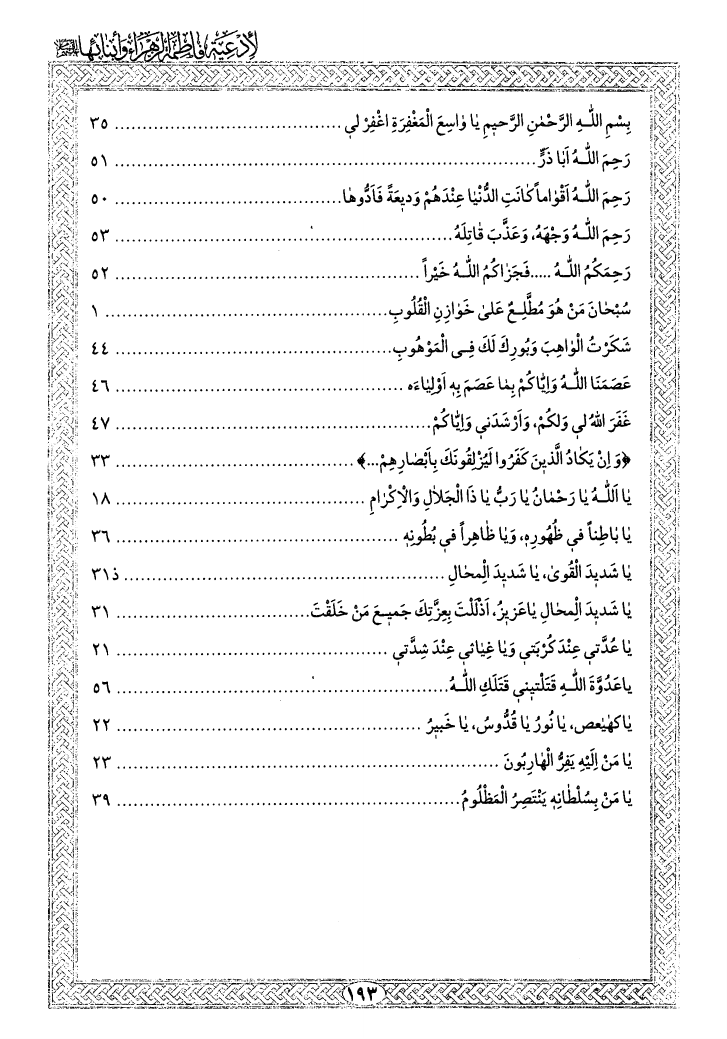 لأدعية فاطمة الزهراء وأبنائها
بِسْمِ اللّٰهِ الرَّحْمٰنِ الرَّحيمِ يٰا وٰاسِعَ الْمَغْفِرَةِ اغْفِرْ لي .................................. ٣٥
رَحِمَ اللّٰهُ اَبٰا ذَرٍّ .............................................................. ٥١
رَحِمَ اللّٰهُ اَقْوٰاماً كٰانَتِ الدُّنْيٰا عِنْدَهُمْ وَديعَةً فَاَدُّوهٰا .................................. ٥٠
رَحِمَ اللّٰهُ وَجْهَهُ، وَعَذَّبَ قٰاتِلَهُ .................................................. ٥٣
رَحِمَكُمُ اللّٰهُ .....فَجَزٰاكُمُ اللّٰهُ خَيْراً .............................................. ٥٢
سُبْحٰانَ مَنْ هُوَ مُطَّلِعٌ عَلىٰ خَوٰازِنِ الْقُلُوبِ .......................................... ١
شَكَرْتُ الْوٰاهِبَ وَبُورِكَ لَكَ فِي الْمَوْهُوبِ .......................................... ٤٤
عَصَمَنَا اللّٰهُ وَاِيّٰاكُمْ بِمٰا عَصَمَ بِهِ اَوْلِيٰاءَه .......................................... ٤٦
غَفَرَ اللهُ لي وَلَكُمْ، وَاَرْشَدَني وَاِيّٰاكُمْ .............................................. ٤٧
﴿وَ اِنْ يَكٰادُ الَّذينَ كَفَرُوا لَيُزْلِقُونَكَ بِاَبْصٰارِهِمْ...﴾ .................................. ٣٣
يٰا اَللّٰهُ يٰا رَحْمٰانُ يٰا رَبُّ يٰا ذَا الْجَلاٰلِ وَالْاِكْرٰامِ .................................. ١٨
يٰا بٰاطِناً في ظُهُورِهِ، وَيٰا ظٰاهِراً في بُطُونِهِ .......................................... ٣٦
يٰا شَديدَ الْقُوىٰ، يٰا شَديدَ الْمِحٰالِ .............................................. ذ٣١
يٰا شَديدَ الْمِحٰالِ يٰاعَزيزُ، اَذْلَلْتَ بِعِزَّتِكَ جَميعَ مَنْ خَلَقْتَ .............................. ٣١
يٰا عُدَّتي عِنْدَ كُرْبَتي وَيٰا غِيٰاثي عِنْدَ شِدَّتي .......................................... ٢١
ياعَدُوَّةَ اللّٰهِ قَتَلْتِيني قَتَلَكِ اللّٰهُ .................................................. ٥٦
يٰاكهٰيٰعص، يٰا نُورُ يٰا قُدُّوسُ، يٰا خَبيرُ .............................................. ٢٢
يٰا مَنْ اِلَيْهِ يَفِرُّ الْهٰارِبُونَ .......................................................... ٢٣
يٰا مَنْ بِسُلْطٰانِهِ يَنْتَصِرُ الْمَظْلُومُ .................................................. ٣٩
١٩٣